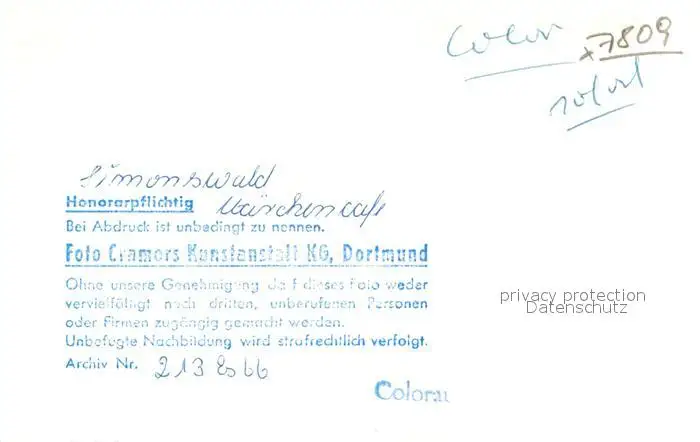 Color
x7809
sofort
Simonswald
Honorarpflichtig Märchencafe
Bei Abdruck ist unbedingt zu nennen.
Foto Cramers Kunstanstalt KG, Dortmund
Ohne unsere Genehmigung darf dieses Foto weder
vervielfältigt noch dritten, unberufenen Personen
oder Firmen zugängig gemacht werden.
Unbefugte Nachbildung wird strafrechtlich verfolgt.
Archiv Nr. 213
Colorau
privacy protection
Datenschutz